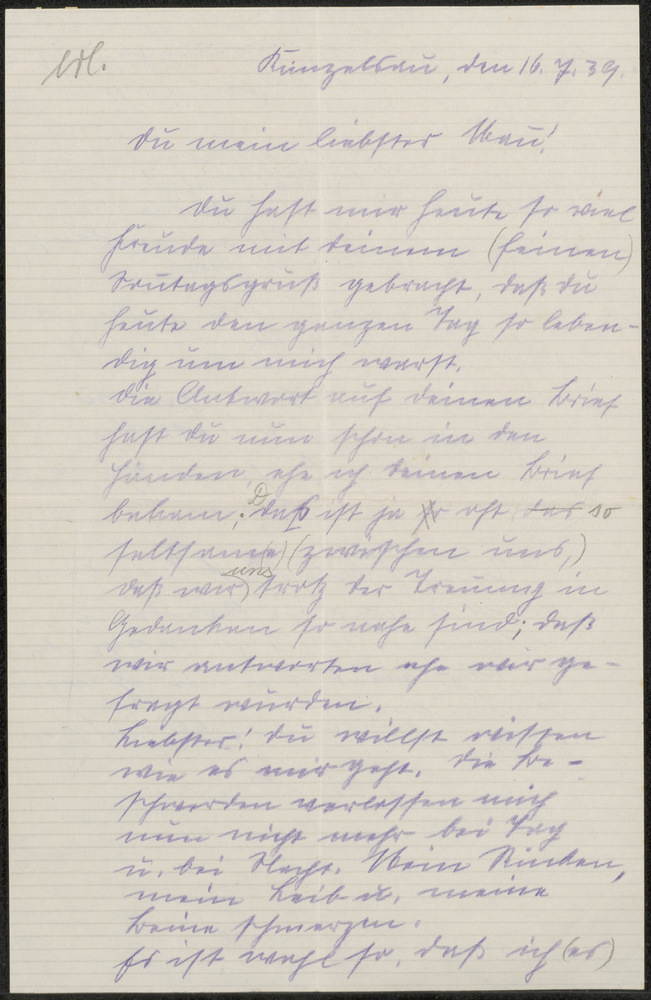 erl.
Künzelsau, den 16. 7. 39.
Du mein liebster Mau!
Du hast mir heute so viel
Freude mit deinem (feinen)
Sontagsgruß gebracht, daß du
heute den ganzen Tag so leben-
dig um mich warst.
Die Antwort auf deinen Brief
hast du nun schon in den
Händen, ehe ich deinen Brief
bekam; D daß ist ja so oft das so
seltsame (zwischen uns,)
daß wir uns trotz der Trennung in
Gedanken so nahe sind; daß
wir antworten ehe wir ge-
fragt wurden.
Liebster! Du willst wissen
wie es mir geht. Die Be-
schwerden verlassen mich
nun nicht mehr bei Tag
u. bei Nacht. Mein Rücken,
mein Leib u. meine
Beine schmerzen.
Es ist wohl so, daß ich (es)